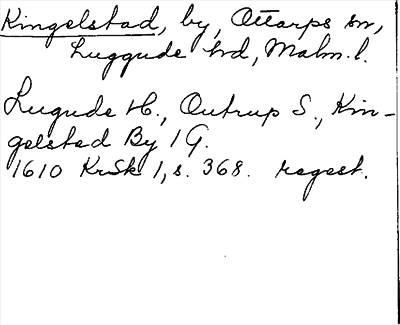 Kingelstad, by, Ottarps sn,
Luggude hd, Malm. l.
Lugude H., Outrup S., Kin-
gelstad By 1 G.
1610 KrSk 1, s. 368. regest.